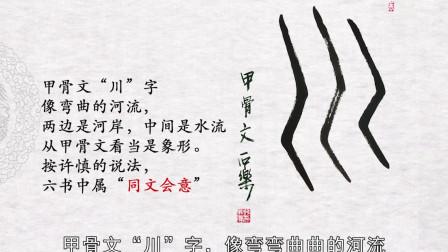 甲骨文“川”字
像弯曲的河流，
两边是河岸，中间是水流
从甲骨文看当是象形。
按许慎的说法，
六书中属“同文会意”
甲骨文 石乐
甲骨文“川”字，像弯弯曲曲的河流